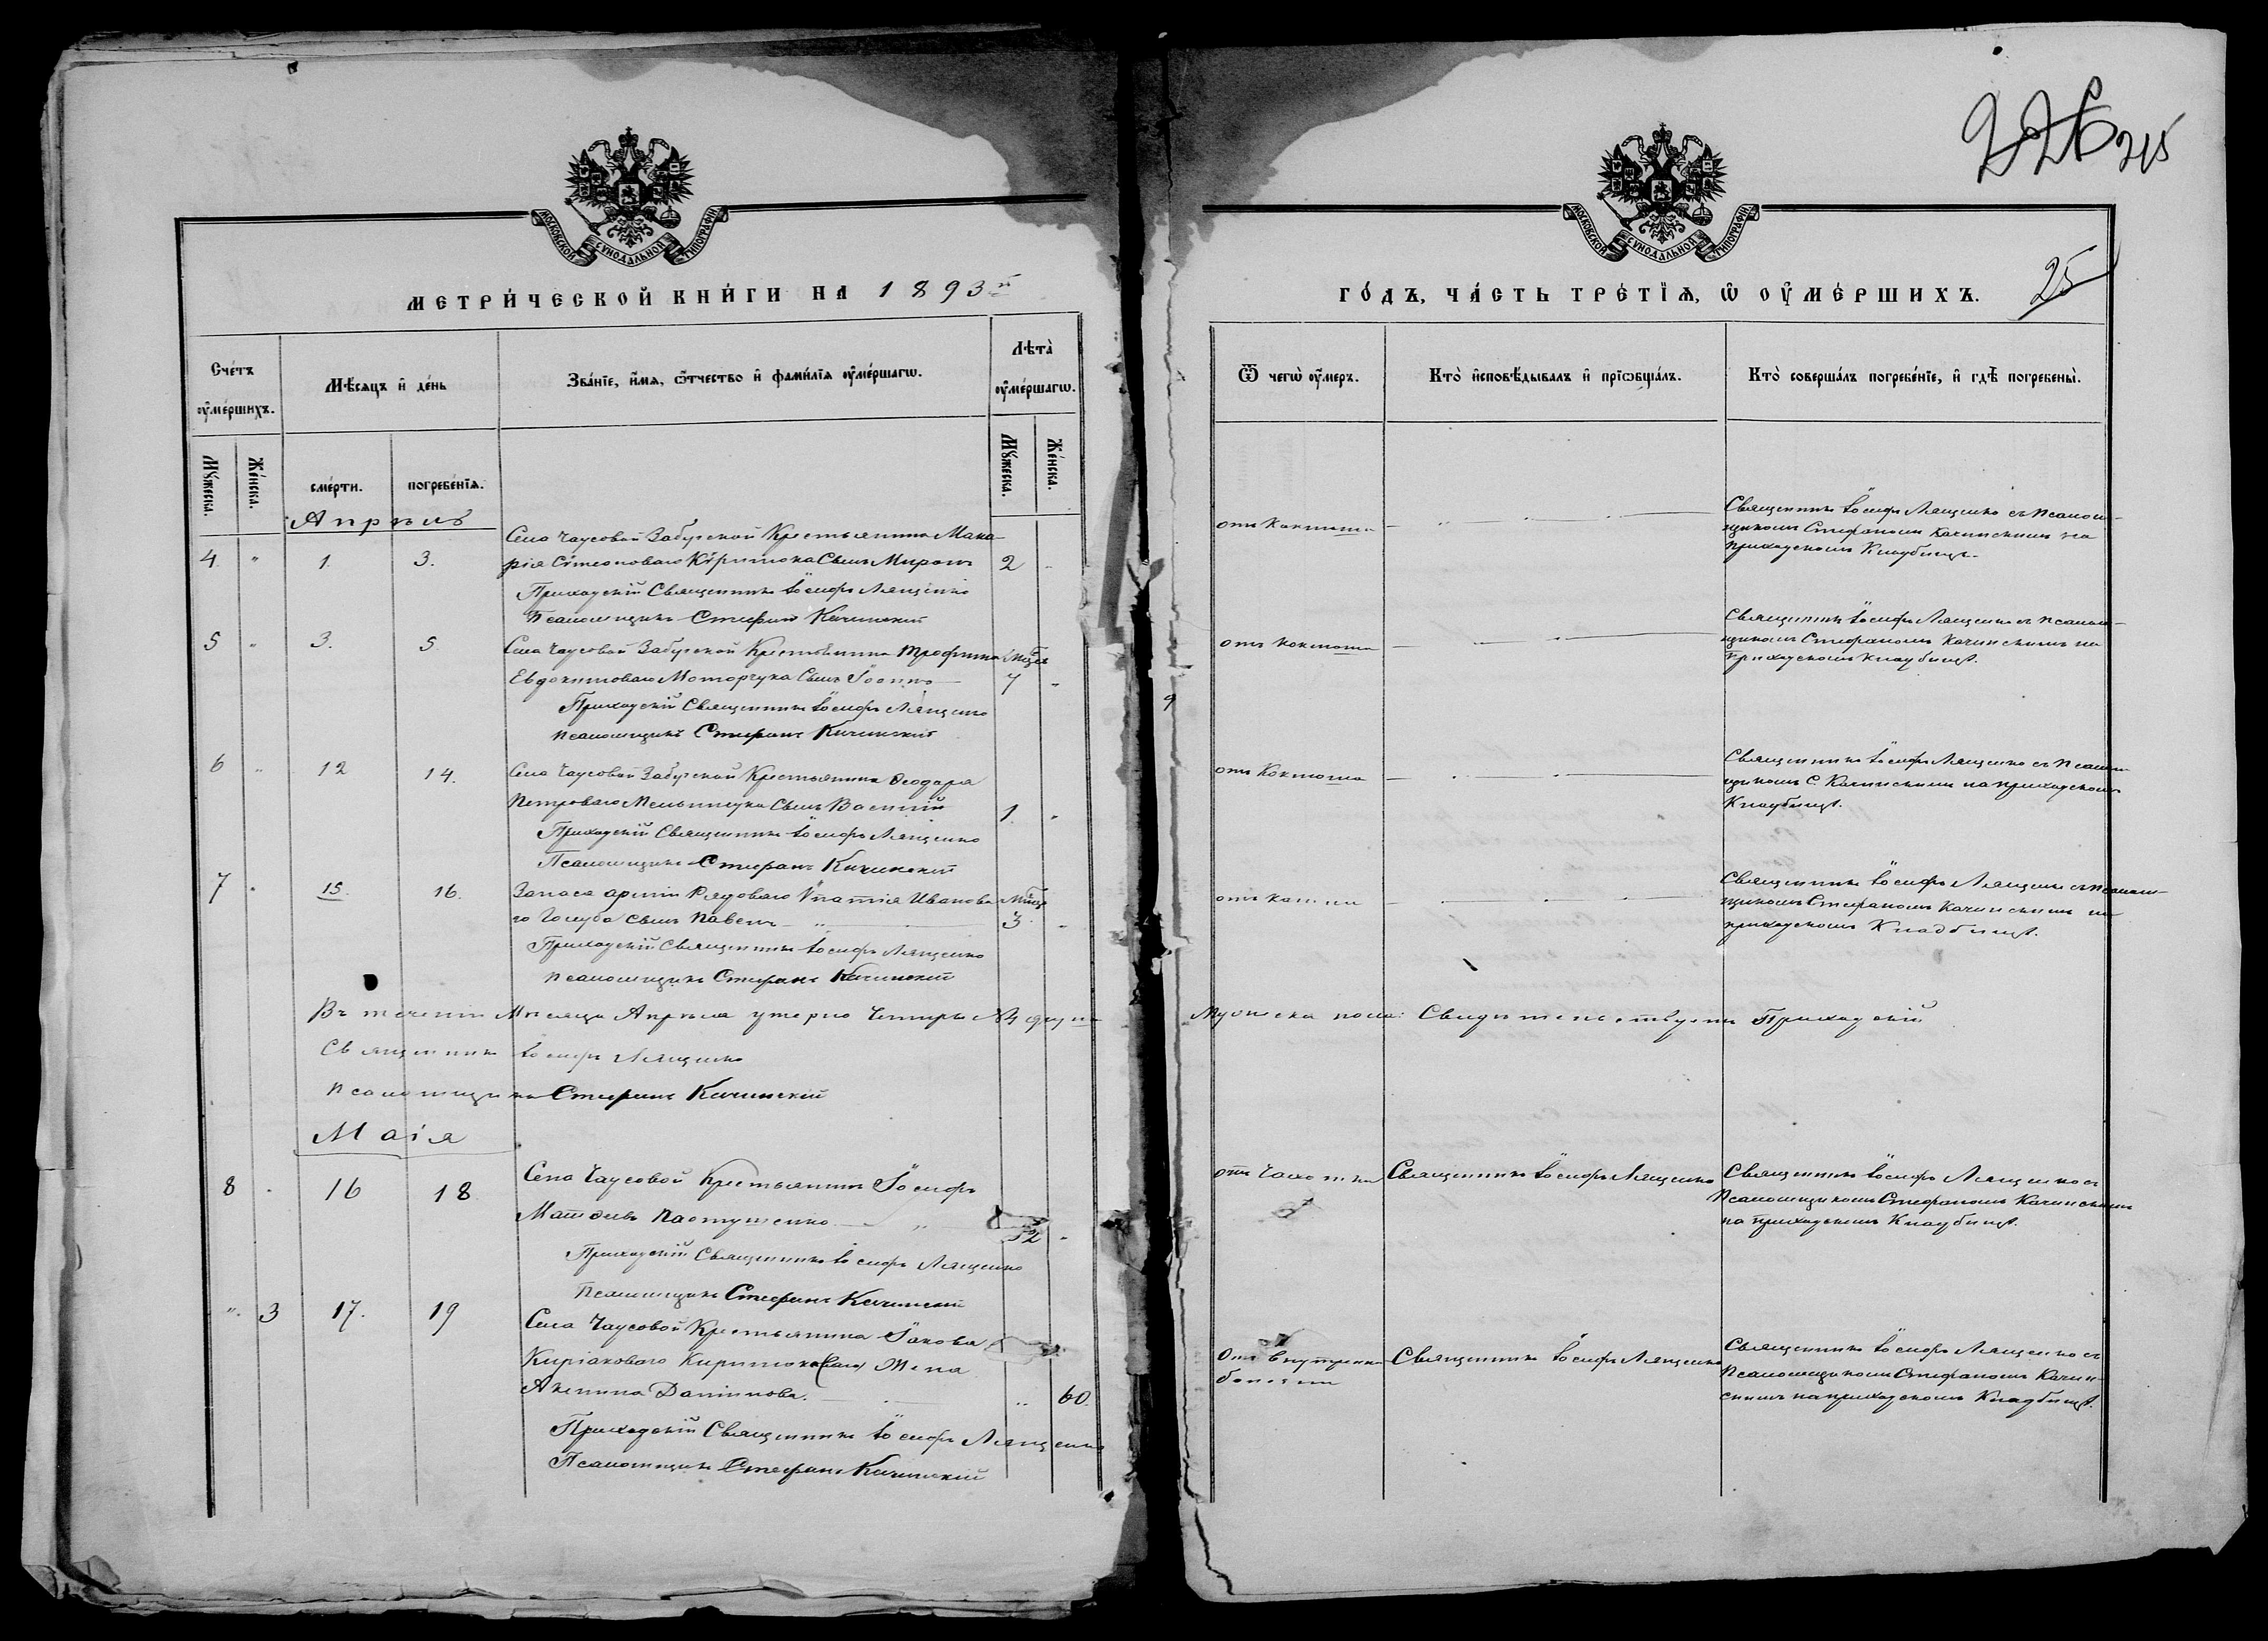 215
25
МОСКОВСКОЙ СѴНОДАЛЬНОЙ ТИПОГРАФІИ
МОСКОВСКОЙ СѴНОДАЛЬНОЙ ТИПОГРАФІИ
МЕТРИ́ЧЕСКОЙ КНИ́ГИ НА 1893й
ГО́ДЪ, ЧА́СТЬ ТРЕ́ТЇѦ, Ѡ ОУ҆МЕ́РШИХЪ.
Сче́тъ оу҆ме́ршихъ.
Мѣ́сѧцъ и҆ де́нь
Зва́нїе, и҆́мѧ, ѻ҆́тчество и҆ фами́лїѧ оу҆ме́ршагѡ.
Лѣта̀ оу҆ме́ршагѡ.
Ѿ чегѡ̀ оу҆́меръ.
Кто̀ и҆сповѣ́дывалъ и҆ прїѡбща́лъ.
Кто̀ соверша́лъ погребе́нїе, и҆ гдѣ̀ погребены̀.
Мꙋ́жеска.
Же́нска.
сме́рти.
погребе́нїѧ.
Мꙋ́жеска.
Же́нска.
Апрѣль
4 " 1. 3. Села Чаусовой Забугской Крестьянина Мака-
рія Сѵмеоноваго Кѵрилюка Сынъ Миронъ 2 "
Приходскій Священникъ Іосифъ Лященко
Псаломщикъ Стефанъ Качинскій
отъ Коклюша
Священникъ Іосифъ Лященко съ Псалом-
щикомъ Стефаномъ Качинскимъ на
приходскомъ Кладбищѣ.
5 " 3. 5 Села Чаусовой Забугской Крестьянина Трофима Мѣсяц
Евдокимоваго Моторчука Сынъ Іоаннъ 7 "
Приходскій Священникъ Іосифъ Лященко
Псаломщикъ Стефанъ Качинскій
отъ Коклюша
Священникъ Іосифъ Лященко съ Псалом-
щикомъ Стефаномъ Качинскимъ на
приходскомъ кладбищѣ.
6 " 12 14. Села Чаусовой Забугской Крестьянина Ѳеодора
Петроваго Мельничука Сынъ Василій 1. "
Приходскій Священникъ Іосифъ Лященко
Псаломщикъ Стефанъ Качинскій
отъ Коклюша
Священникъ Іосифъ Лященко съ Псалом-
щикомъ С. Качинскимъ на приходскомъ
Кладбищѣ.
7 " 15. 16. Запаса арміи Рядоваго Ипатія Иванова- Мѣсяц
го Голуба сынъ Павелъ 3 "
Приходскій Священникъ Іосифъ Лященко
псаломщикъ Стефанъ Качинскій
Священникъ Іосифъ Лященко съ Псалом-
щикомъ Стефаномъ Качинскимъ на
приходскомъ Кладбищѣ.
Въ теченіи Мѣсяца Апрѣля умерло Четыре Мужеска пола: Свидѣтельствуетъ Приходскій
Священникъ Іосифъ Лященко
Псаломщикъ Стефанъ Качинскій
Маія
8 " 16 18 Села Чаусовой Крестьянинъ Іосифъ
Матѳіевъ Пастушенко 52 "
Приходскій Священникъ Іосифъ Лященко
Псаломщикъ Стефанъ Качинскій
отъ Чахотки
Священникъ Іосифъ Лященко
Священникъ Іосифъ Лященко съ
Псаломщикомъ Стефаномъ Качинскимъ
на приходскомъ Кладбищѣ.
" 3 17. 19 Села Чаусовой Крестьянина Іакова
Киріаковаго Кирилюка Жена
Акилина Даніилова. " 60.
Приходскій Священникъ Іосифъ Лященко
Псаломщикъ Стефанъ Качинскій
Отъ внутренн
болѣзни
Священникъ Іосифъ Лященко
Священникъ Іосифъ Лященко съ
Псаломщикомъ Стефаномъ Качин-
скимъ на приходскомъ Кладбищѣ.